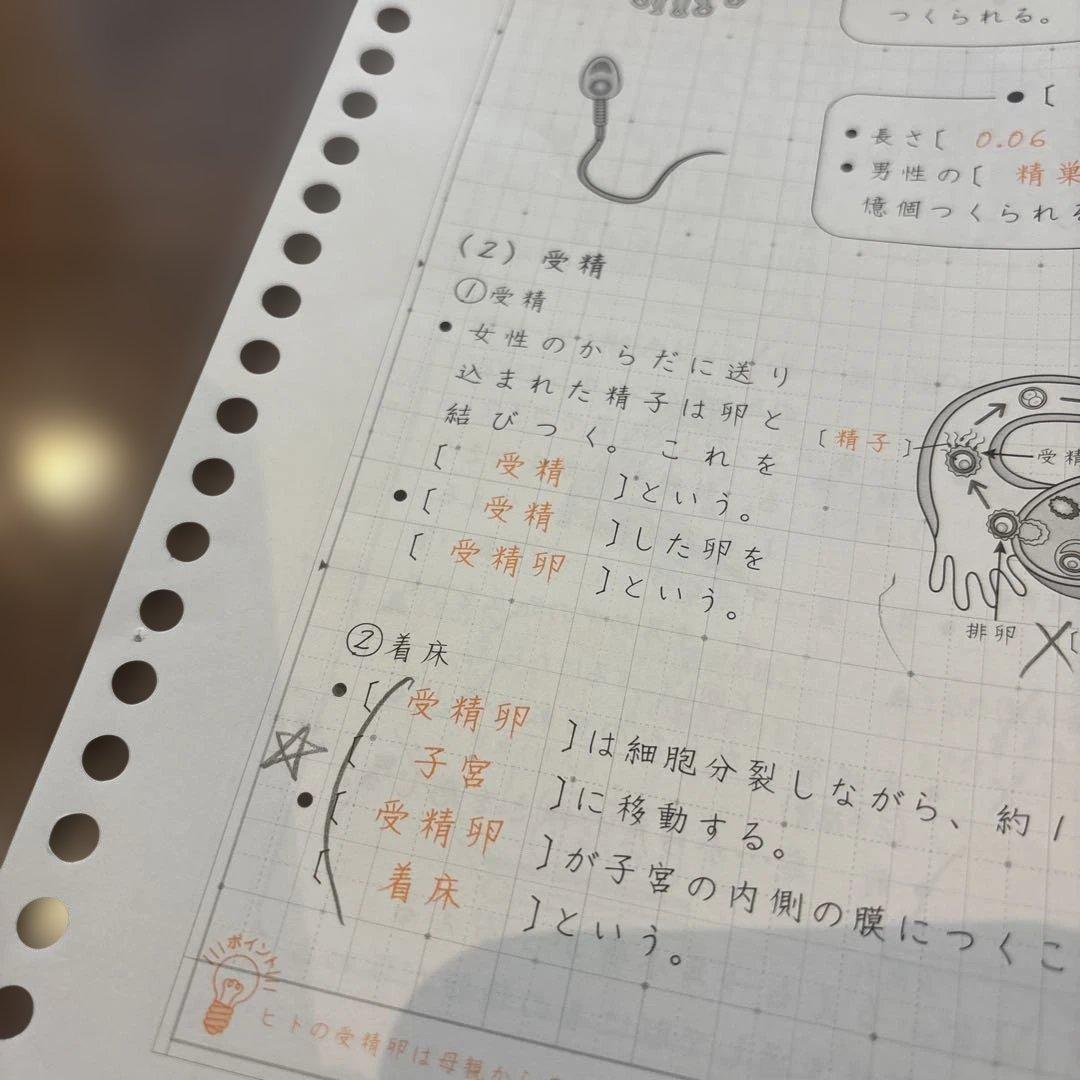 つくられる。
●[
●長さ[ 0.06
●男性の[ 精巣
億個つくられる
(2) 受精
①受精
●女性のからだに送り
込まれた精子は卵と
結びつく。これを
[ 受精 ]という。
●[ 受精 ]した卵を
[ 受精卵 ]という。
[精子]
受精
排卵
[
②着床
●[ 受精卵 ]は細胞分裂しながら、約1
[ 子宮 ]に移動する。
●[ 受精卵 ]が子宮の内側の膜につくこ
[ 着床 ]という。
ポイント
ヒトの受精卵は母親から